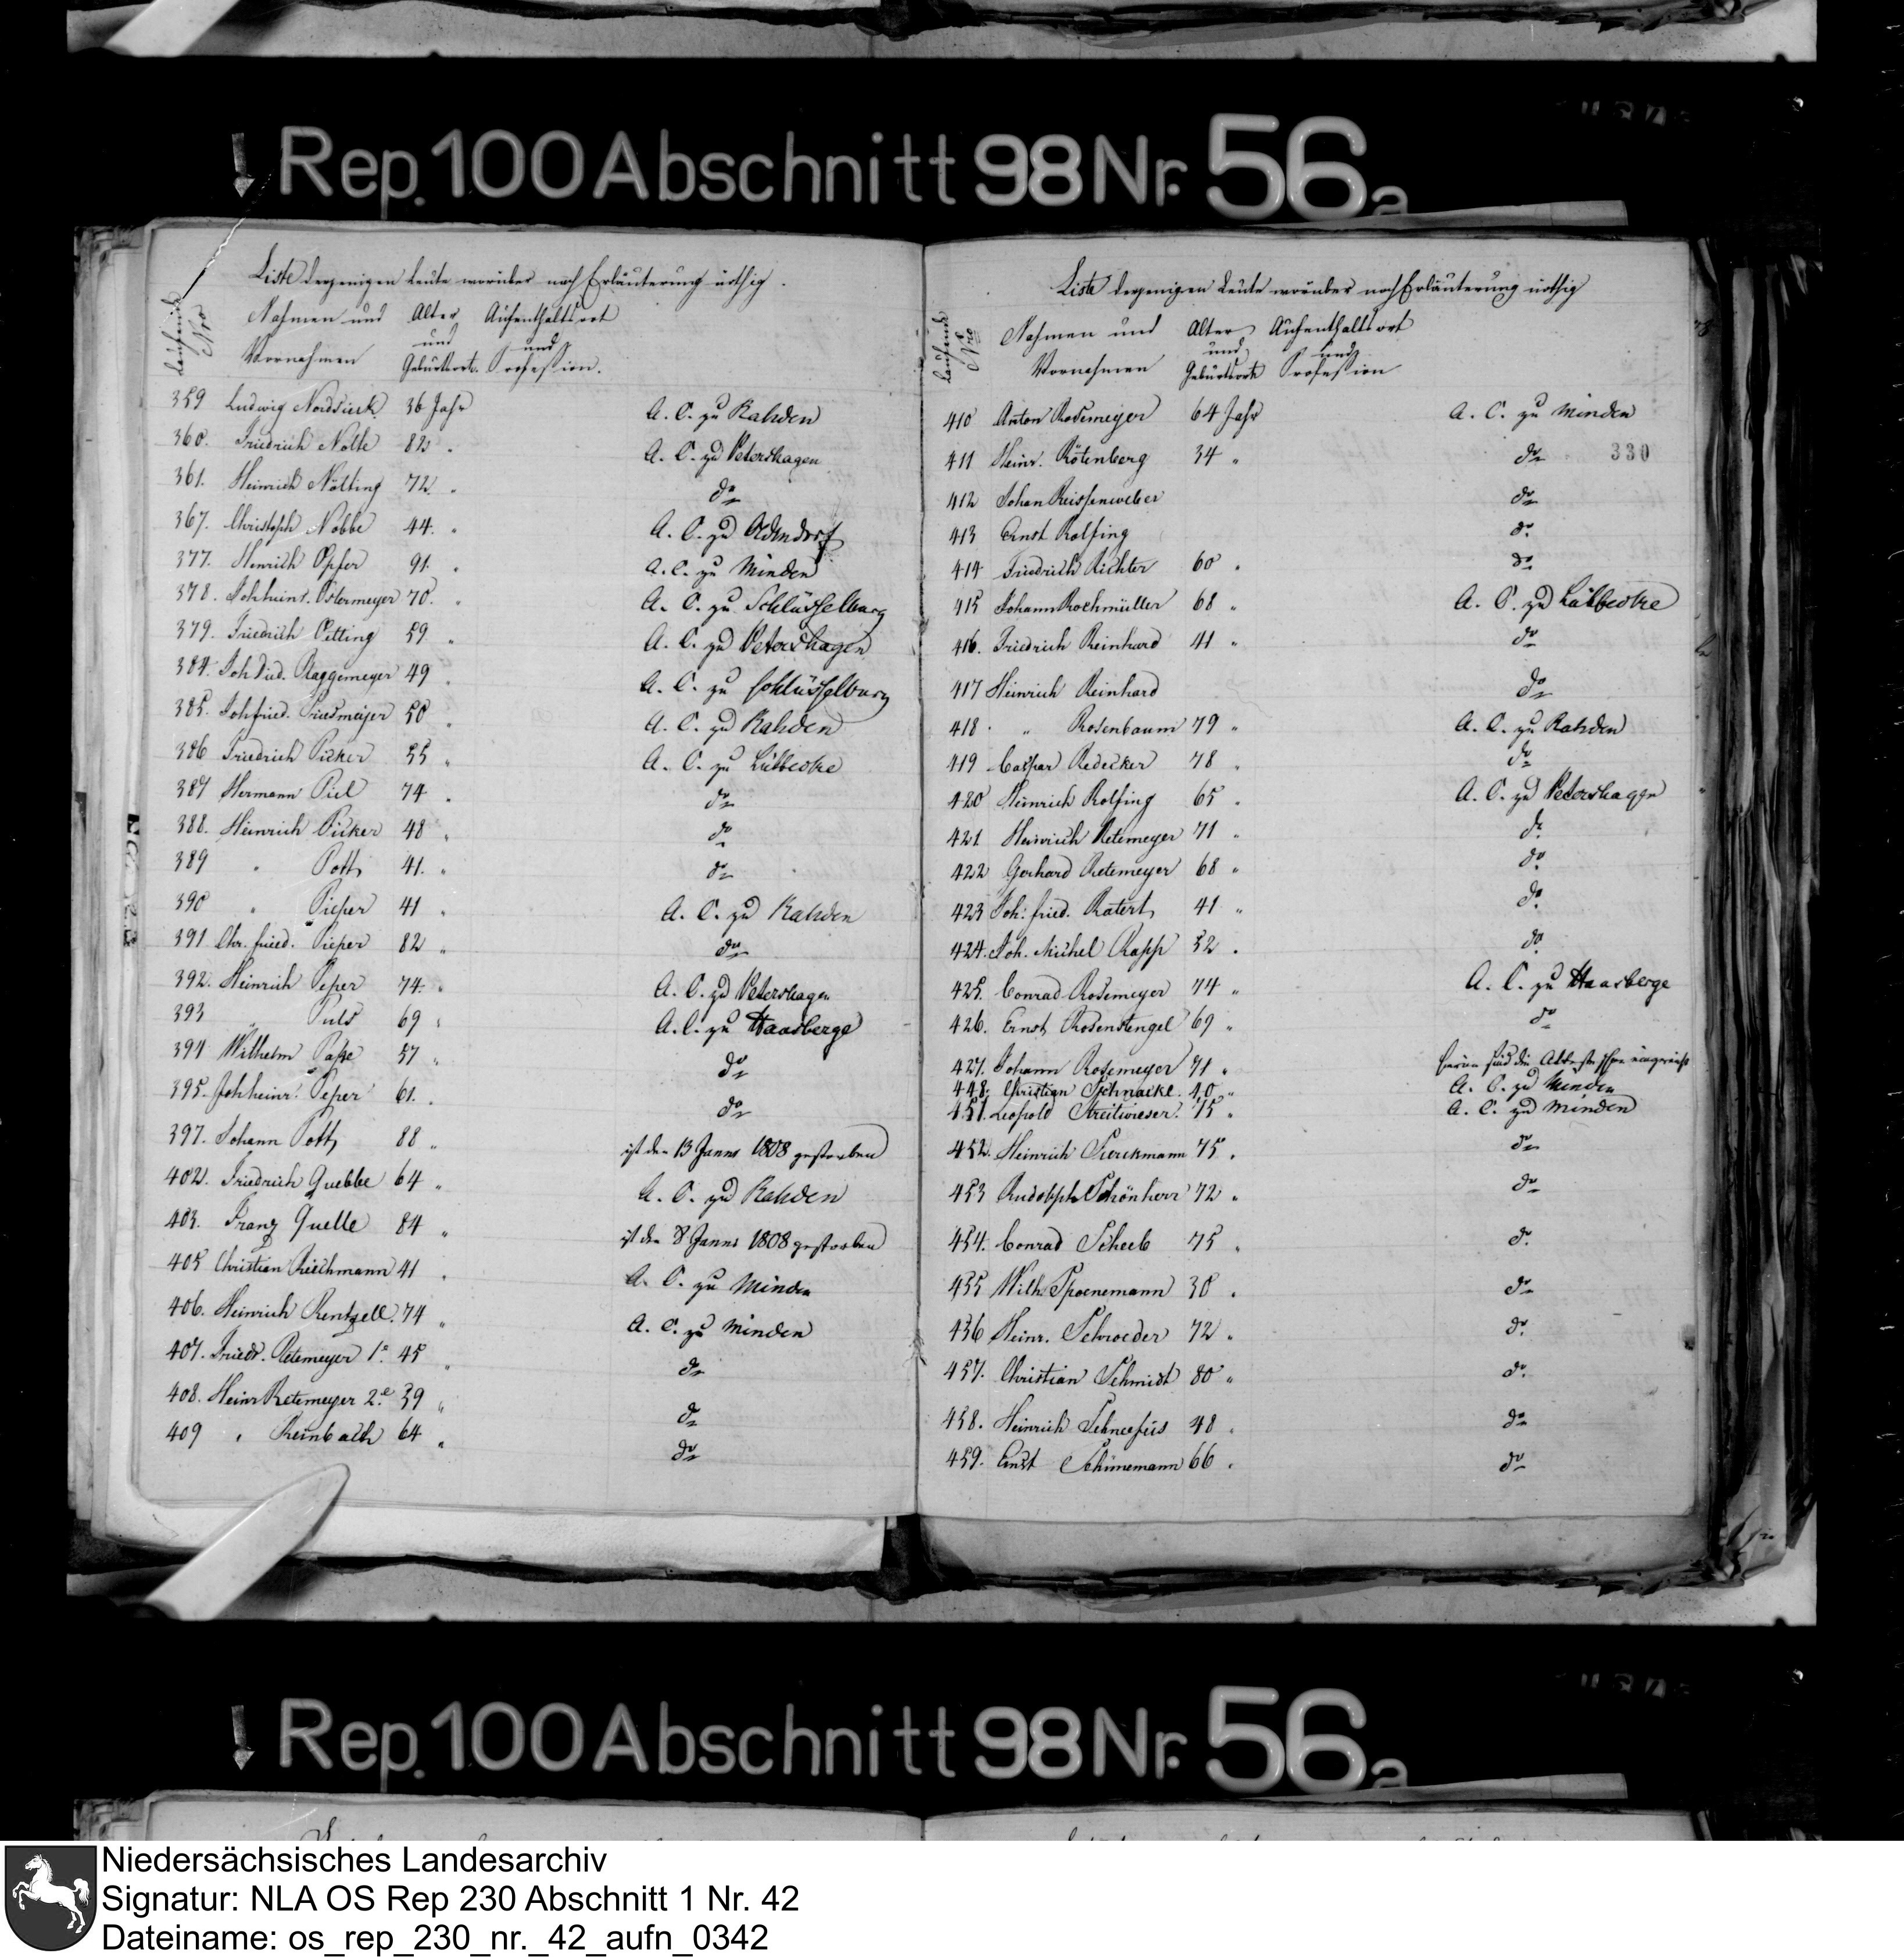 Rep. 100 Abschnitt 98 Nr. 56a
Liste derjenigen Leute worüber noch Erläuterung nöthig.
laufende Nro
Nahmen und Vornahmen
Alter und Geburtsort.
Aufenthaltsort und Profession.
359 Ludwig Nordsiek 36 Jahr A. C. zu Rahden
360. Friedrich Nolte 82 " A. C. zu Petershagen
361. Heinrich Nölting 72. " do
367. Christoph Nobbe 44. " A. C. zu Oldendorf
377. Henrich Opfer 91. " A. C. zu Minden
378. Johheinr. Ostermeyer 70. " A. C. zu Schlüsselburg
379. Friedrich Oetting 59 " A. C. zu Petershagen
384. Joh Died. Raggemeyer 49 " A. C. zu Schlüsselburg
385. Johfried. 50 " A. C. zu Rahden
386 Friedrich Picker 55 " A. C. zu Lübbecke
387 Hermann Piel 74 " do
388. Heinrich Picker 48 " do
389 " Pott 41. " do
390 " Pieper 41 " A. C. zu Rahden
391 Chr. fried. Pieper 82 " do
392. Heinrich Peper 74. " A. C. zu Petershagen
393 " Puls 69 " A. C. zu Haasberge
394 Wilhelm Pape 57 " do
395. Johheinr. Peper 61. " do
397. Johann Pott 88 " ist den 13 Janr 1808 gestorben
402. Friedrich Quebbe 64 " A. C. zu Rahden
403. Franz Quelle 84 " ist den 8 Janr 1808 gestorben
405 Christian Riechmann 41 " A. C. zu Minden
406. Heinrich Rentzell. 74 " A. C. zu Minden
407. Friedr. Retemeyer 1e. 45 " do
408. Heinr Retemeyer 2.e 39 " do
409 " Reinbach 64 " do
Liste derjenigen Leute worüber noch Erläuterung nöthig
laufende Nro
Nahmen und Vornahmen
Alter und Geburtsort
Aufenthaltsort und Profession
410 Anton Rosemeyer 64 Jahr A. C. zu Minden
411 Heinr. Rötenberg 34 " do 330
412 Johan Reissenweber do
413 Ernst Rolfing do
414 Friedrich Richter 60 " do
415 Johann Rochmüller 68 " A. C. zu Lübbecke
416. Friedrich Reinhard 41 " do
417 Heinrich Reinhard do
418 " Rosenbaum 79 " A. C. zu Rahden
419 Caspar Redecker 78 " do
420 Heinrich Rolfing 65 " A. C. zu Petershagen
421 Heinrich Retemeyer 71 " do
422 Gerhard Retemeyer 68 " do
423 Joh: fried. Ratert 41 " do.
424. Joh. Michel Rapp 52 " do
425. Conrad Rosemeyer 74 " A. C. zu Haasberge
426. Ernst Rosenstengel 69 " do
427. Johann Rosemeyer 71 " hierin sind die Atteste schon eingereicht
448. Christian Schnacke. 40 " A. C. zu Minden
451. Leopold Streitwieser. 75 " A. C. zu Minden
452. Heinrich Sierckmann 75 " do
453 Rudolph Schönherr 72 " do
454. Conrad Scheeb 75 " do
455 Wilh. Spoenemann 30 " do
456 Heinr. Schroeder 72 " do
457. Christian Schmidt 80 " do
458. Heinrich Schneefus 48 " do
459. Ernst Schünemann 66 " do
Rep. 100 Abschnitt 98 Nr. 56a
Niedersächsisches Landesarchiv
Signatur: NLA OS Rep 230 Abschnitt 1 Nr. 42
Dateiname: os_rep_230_nr._42_aufn_0342